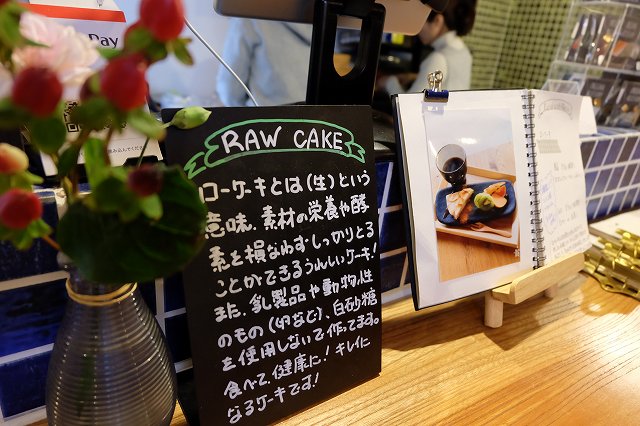 Pay
RAW CAKE
ローケーキとは(生)という
意味。素材の栄養や酵
素を損なわずしっかりとる
ことができるうれしいケーキ!
また、乳製品や動物性
のもの(卵など)、白砂糖
を使用しないで作ってます。
食べて、健康に!キレイに
なるケーキです!